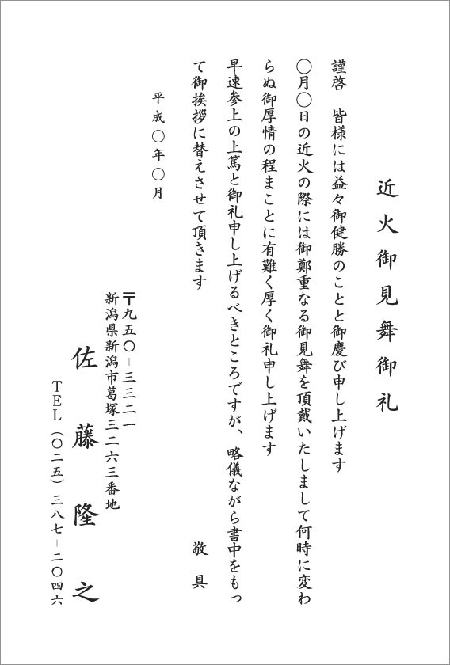 近火御見舞御礼
謹啓　皆様には益々御健勝のことと御慶び申し上げます
〇月〇日の近火の際には御鄭重なる御見舞を頂戴いたしまして何時に変わ
らぬ御厚情の程まことに有難く厚く御礼申し上げます
早速参上の上篤と御礼申し上げるべきところですが、略儀ながら書中をもっ
て御挨拶に替えさせて頂きます
敬具
平成〇年〇月
〒九五〇−三三二一
新潟県新潟市葛塚三二六三番地
佐藤隆之
TEL（〇二五）三八七−二〇四六